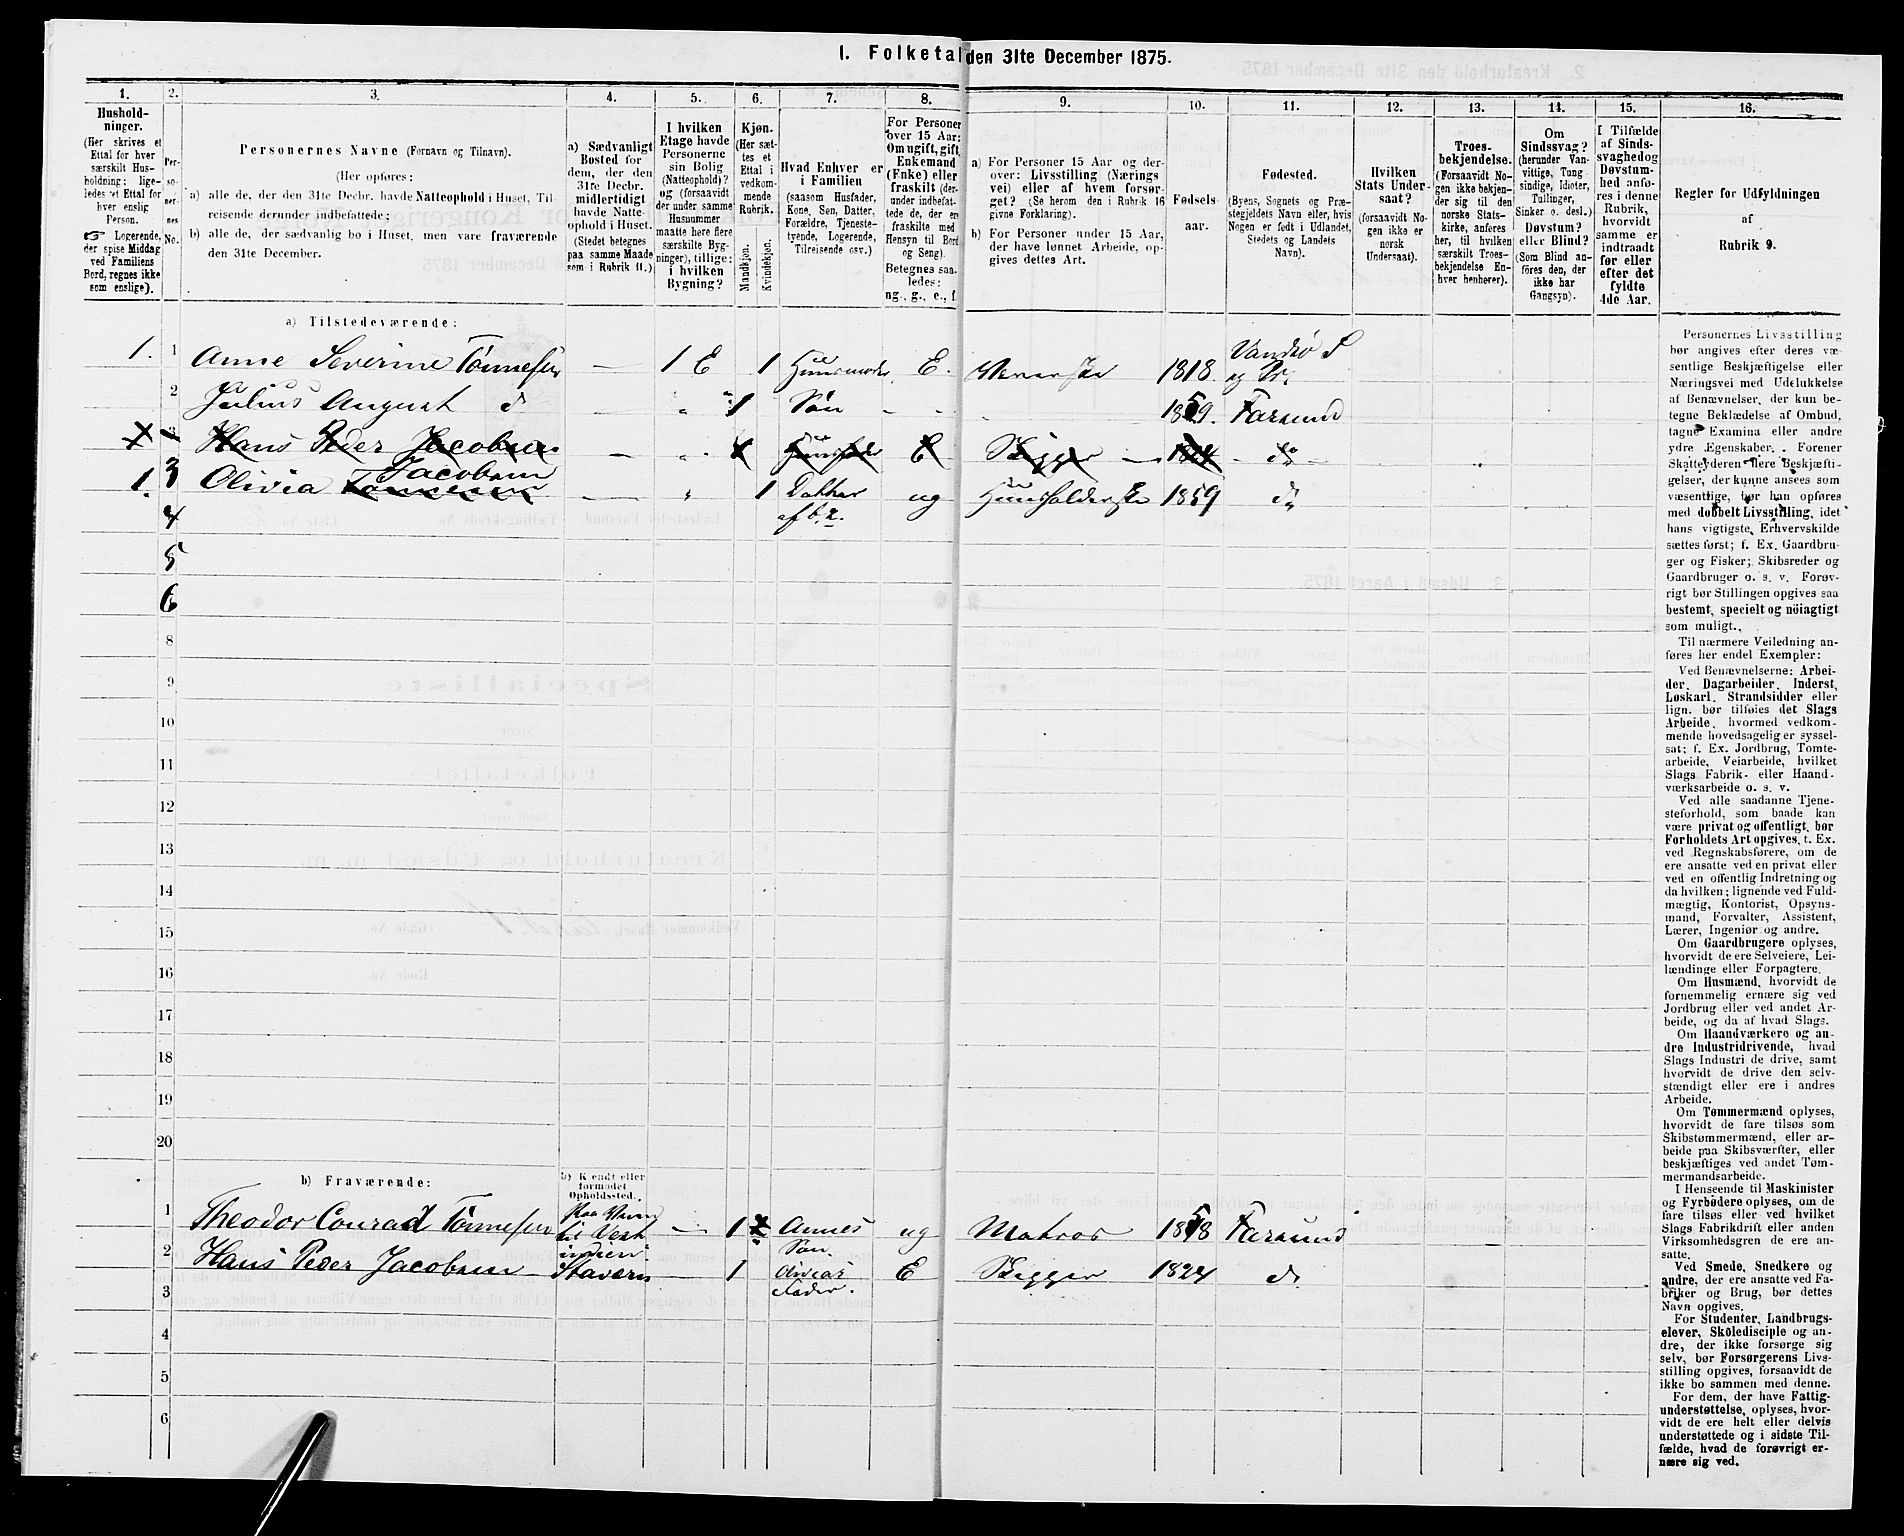 I. Folketal den 31te December 1875.
1. 2. 3. 4. 5. 6. 7. 8. 9. 10. 11. 12. 13. 14. 15. 16.
Hushold-
ninger.
(Her skrives et
Ettal for hver
særskilt Hus-
holdning; lige-
ledes et Ettal for
hver enslig
Person.
☞ Logerende,
der spise Middag
ved Familiens
Bord, regnes ikke
som enslige).
Per-
so-
ner-
nes
No.
Personernes Navne (Fornavn og Tilnavn).
(Her opføres:
a) alle de, der den 31te Decbr. havde Natteophold i Huset, Til-
reisende derunder indbefattede;
b) alle de, der sædvanlig bo i Huset, men vare fraværende
den 31te December.
a) Sædvanligt
Bosted for
dem, der den
31te Decbr.
midlertidigt
havde Natte-
ophold i Huset.
(Stedet betegnes
paa samme Maade
som i Rubrik 11.)
I hvilken
Etage havde
Personerne
sin Bolig
(Natteophold)?
og (forsaavidt
der under samme
Husnummer
maatte here flere
særskilte Byg-
ninger), tillige:
i hvilken
Bygning?
Kjøn.
(Her sæt-
tes et
Ettal i
vedkom-
mende
Rubrik.
Mandkjøn.
Kvindekjøn.
Hvad Enhver er
i Familien
(saasom Husfader,
Kone, Søn, Datter,
Forældre, Tjeneste-
tyende, Logerende,
Tilreisende osv.)
For Personer
over 15 Aar:
Om ugift, gift,
Enkemand
(Enke) eller
fraskilt (der-
under indbefat-
tede de, der ere
fraskilte med
Hensyn til Bord
og Seng).
Betegnes saa-
ledes:
ug., g., e., f.
a) For Personer 15 Aar og der-
over: Livsstilling (Nærings
vei) eller af hvem forsør-
get? (Se herom den i Rubrik 16
givne Forklaring).
b) For Personer under 15 Aar,
der have lønnet Arbeide, op-
gives dettes Art.
Fødsels-
aar.
Fødested.
(Byens, Sognets og Præ-
stegjeldets Navn eller, hvis
Nogen er født i Udlandet,
Stedets og Landets
Navn).
Hvilken
Stats Under-
saat?
(forsaavidt No-
gen ikke er
norsk
Undersaat).
Troes-
bekjendelse.
(Forsaavidt No-
gen ikke bekjen-
der sig til den
norske Stats-
kirke, anføres
her, til hvilken
særskilt Troes-
bekjendelse En-
hver henhører).
Om
Sindssvag?
(herunder Van-
vittige, Tung
sindige, Idioter,
Tullinger,
Sinker o. desl.)
Døvstum?
eller Blind?
(Som Blind an-
føres den, der
ikke har
Gangsyn).
I Tilfælde
af Sinds-
svaghed og
Døvstum-
hed anfø-
res i denne
Rubrik,
hvorvidt
samme er
indtraadt
før eller
efter det
fyldte
4de Aar.
Regler for Udfyldningen
af
Rubrik 9.
a) Tilstedeværende:
1. 1 Anne Severine Tönnesen — 1 E 1 E. 1818. Vandsø S
2 Julius August d — „ 1 Sön „ „ „ 1859. Farsund
Hans Peder Jacobsen — „ E Skipper — — do —
1. 3 Olivia Jacobsen Tönnesen — „ 1 Datter af b. 2. ug 1859 do
4
5
6
8
9
10
11
12
13
14
15
16
17
18
19
20
b) Fraværende:
b) Kjendt eller
formodet
Opholdssted.
1 Theodor Conrad Tönnesen Paa Veien til Vestindien — 1 Annes Sön. ug Matros 1858 Farsund
2 Hans Peder Jacobsen — 1 Olivias Fader. E Skipper 1824 do
3
4
5
6
Personernes Livsstilling
bør angives efter deres væ-
sentlige Beskjæftigelse eller
Næringsvei med Udelukkelse
af Benævnelser, der kun be-
tegne Beklædelse af Ombud,
tagne Examina eller andre
ydre Egenskaber. Forener
Skatteyderen flere Beskjæfti-
gelser, der kunne ansees som
væsentlige, bør han opføres
med dobbelt Livsstilling, idet
hans vigtigste Erhvervskilde
sættes først; f. Ex. Gaardbru-
ger og Fisker; Skibsreder og
Gaardbruger o. s. v. Forøv-
rigt bør Stillingen opgives saa
bestemt, specielt og nöiagtigt
som muligt.
Til nærmere Veiledning an-
føres her endel Exempler:
Ved Benævnelserne: Arbei-
der, Dagarbeider, Inderst,
Løskarl, Strandsidder eller
lign. bør tilføies det Slags
Arbeide, hvormed vedkom-
mende hovedsagelig er syssel-
sat; f. Ex. Jordbrug, Tomte-
arbeide, Veiarbeide, hvilket
Slags Fabrik- eller Haand-
værksarbeide o. s. v.
Ved alle saadanne Tjene-
steforhold, som baade kan
være privat og offentligt, bør
Forholdets Art opgives, t. Ex.
ved Regnskabsførere, om de
ere ansatte ved en privat eller
ved en offentlig Indretning og
da hvilken; lignende ved Fuld-
mægtig, Kontorist, Opsyns-
mand, Forvalter, Assistent,
Lærer, Ingeniør og andre.
Om Gaardbrugere oplyses,
hvorvidt de ere Selveiere, Lei-
lændinge eller Forpagtere.
Om Husmænd, hvorvidt de
fornemmelig ernære sig ved
Jordbrug eller ved andet Ar-
beide, og da af hvad Slags.
Om Haandværkere og an-
dre Industridrivende, hvad
Slags Industri de drive, samt
hvorvidt de drive den selv-
stændigt eller ere i andres
Arbeide.
Om Tømmermænd oplyses,
hvorvidt de fare tilsøs som
Skibstømmermænd, eller ar-
beide paa Skibsværfter, eller
beskjæftiges ved andet Tøm-
mermandsarbeide.
I Henseende til Maskinister
og Fyrbødere oplyses, om de
fare tilsøs eller ved hvilket
Slags Fabrikdrift eller anden
Virksomhedsgren de ere an-
satte.
Ved Smede, Snedkere og
andre, der ere ansatte ved Fa-
briker og Brug, bør dettes
Navn opgives.
For Studenter, Landbrugs-
elever, Skoledisciple og an-
dre, der ikke forsørge sig
selv, bør Forsørgerens Livs-
stilling opgives, forsaavidt de
ikke bo sammen med denne.
For dem, der have Fattig-
understøttelse, oplyses, hvor-
vidt de ere helt eller delvis
understøttede og i sidste Til-
fælde, hvad de forøvrigt er-
nære sig ved.